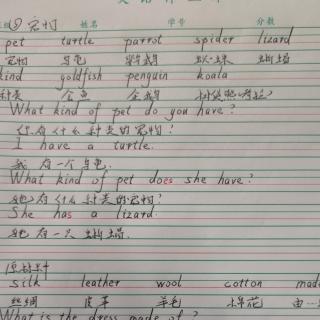 宠物 姓名 学号 分数
pet turtle parrot spider lizard
宠物 乌龟 鹦鹉 蜘蛛 蜥蜴
kind goldfish penguin koala
种类 金鱼 企鹅 树袋熊(考拉)
What kind of pet do you have?
你有什么种类的宠物?
I have a turtle.
我有一个乌龟.
What kind of pet does she have?
她有什么种类的宠物?
She has a lizard.
她有一只蜥蜴.
原材料
silk leather wool cotton made
丝绸 皮革 羊毛 棉花 由
What is the dress made of?